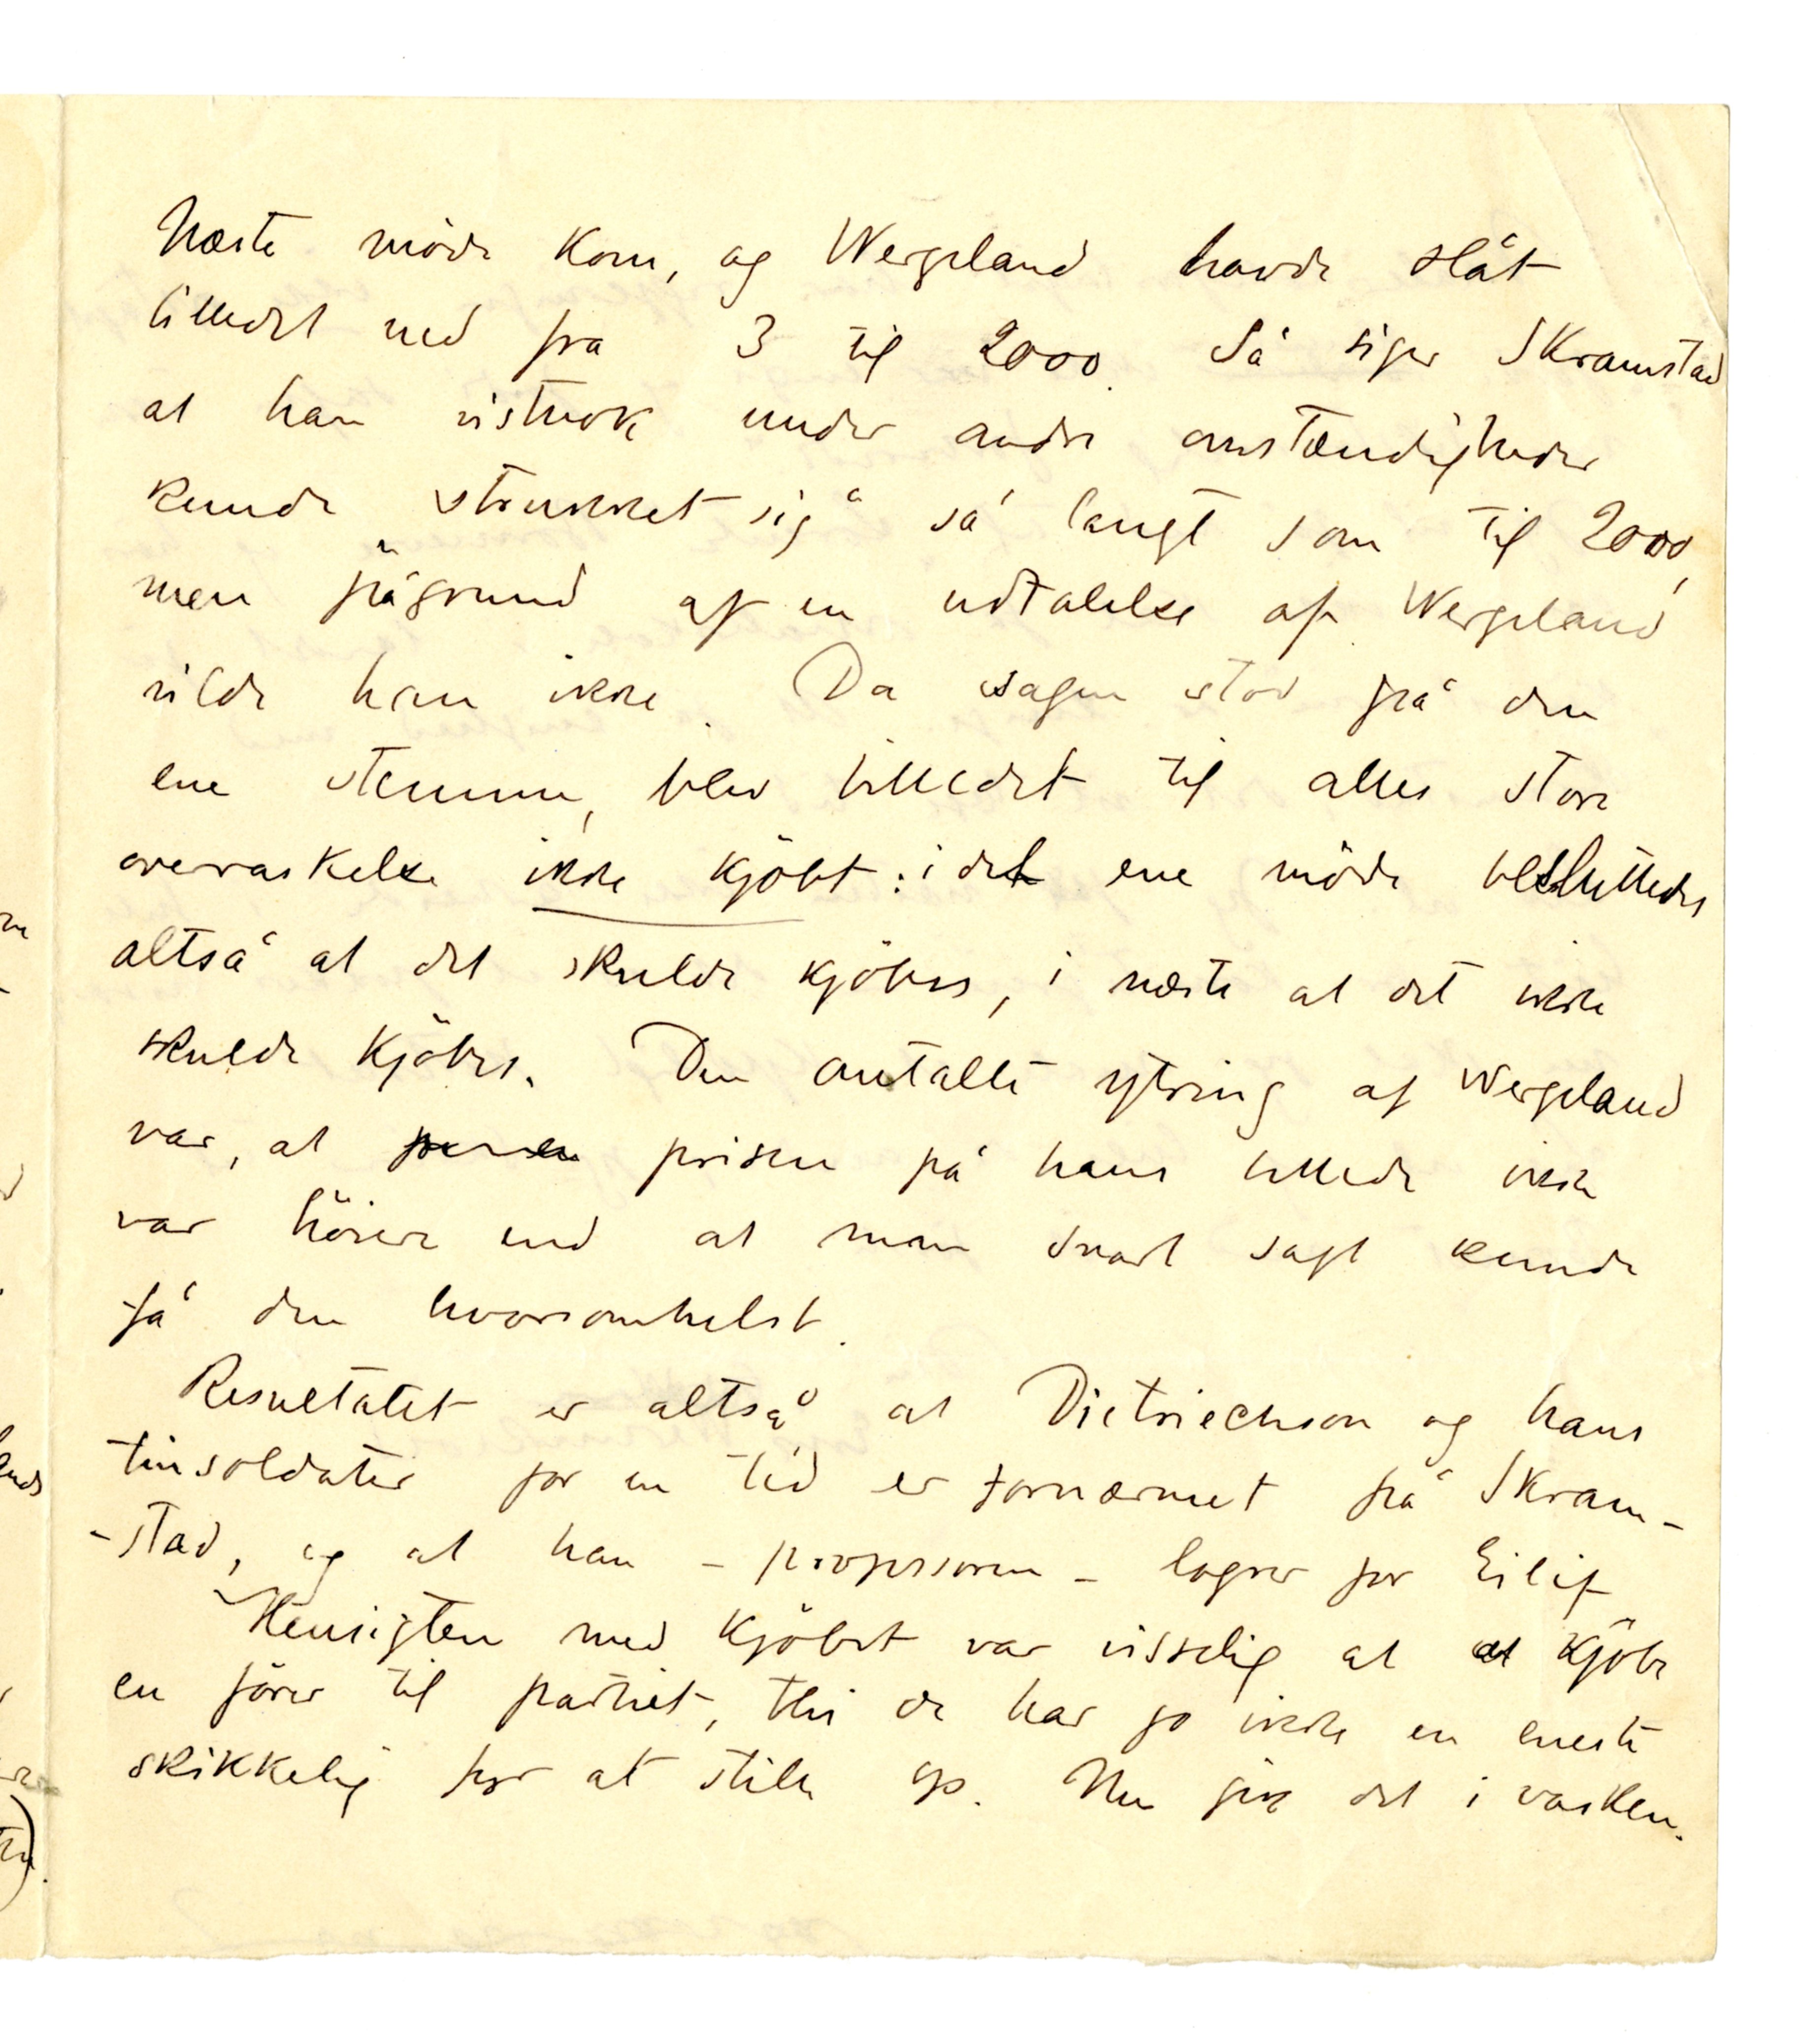 Næste möde kom, og Wergeland havde slåt
billedet ned fra 3 til 2000. Så siger Skramstad
at han vistnok under andre omstændigheder
kunde „strukket sig“ så langt som til 2000,
men pågrund af en udtalelse af Wergeland
vilde han ikke. Da sagen stod på den
ene stemme, blev billedet til alles store
overraskelse ikke kjöbt: i det ene möde besluttedes
altså at det skulde kjöbes, i næste at det ikke
skulde kjöbes. Den omtalte ytring af Wergeland
var, at prisen på hans billede ikke
var höiere end at man snart sagt kunde
få den hvorsomhelst.
Resultatet er altså at Dietriechson og hans
tinsoldater for en tid er fornærmet på Skram-
-stad, og at han – professoren – logrer for Eilif
Hensigten med kjöbet var visselig at at kjöbe
en förer til partiet, thi de har jo ikke en eneste
skikkelig for at stille op. Nu gik det i vasken.